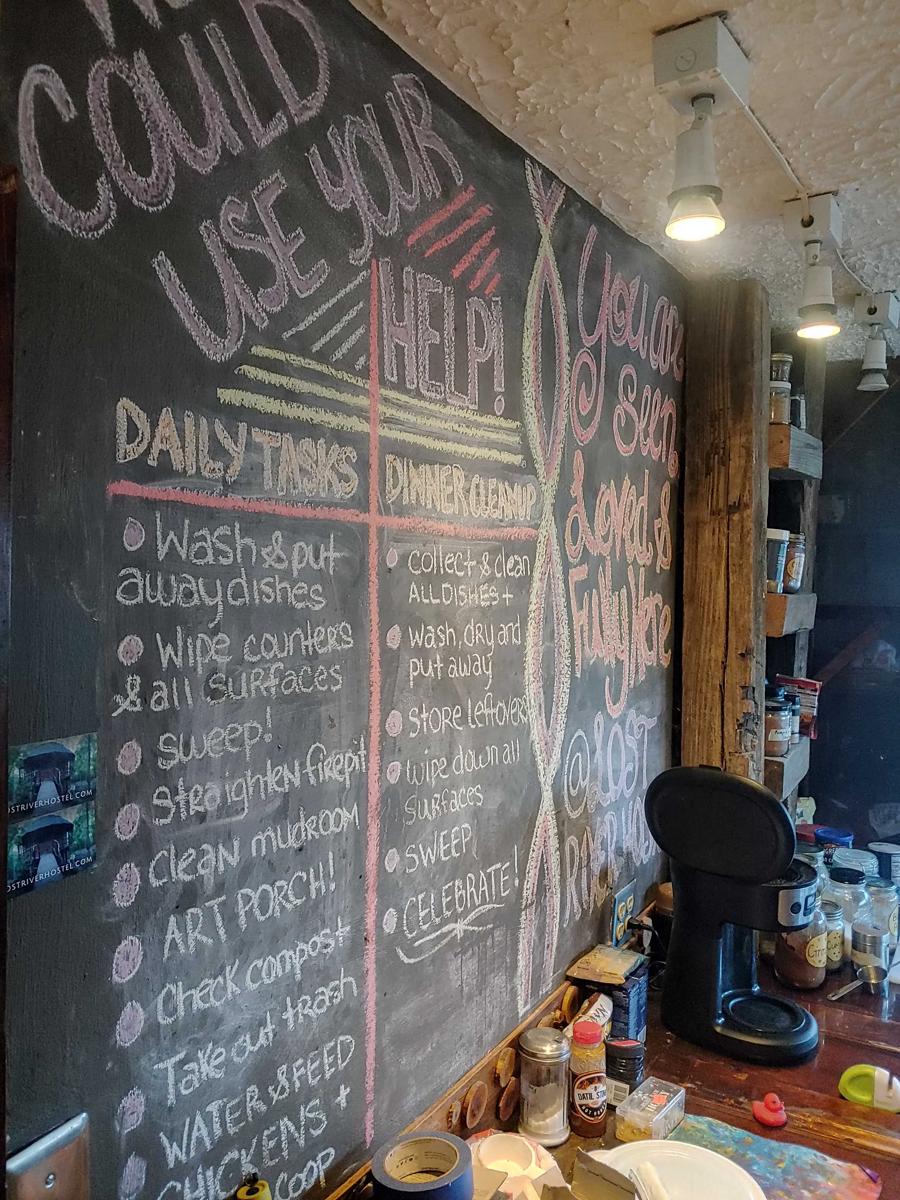 COULD
USE YOUR
HELP!
DAILY TASKS
Wash & put
away dishes
Wipe counters
& all surfaces
sweep!
Straighten firepit
Clean mudroom
ART PORCH!
Check compost
Take out trash
WATER & FEED
CHICKENS +
COOP
DINNER CLEANUP
collect & clean
ALL DISHES +
wash, dry and
put away
store leftovers
wipe down all
surfaces
SWEEP
CELEBRATE!
You are
Seen,
Loved &
Fully Here
@ LOST
RIVER
STRIVERHOSTEL.COM
OSTRIVERHOSTEL.COM
DATIL